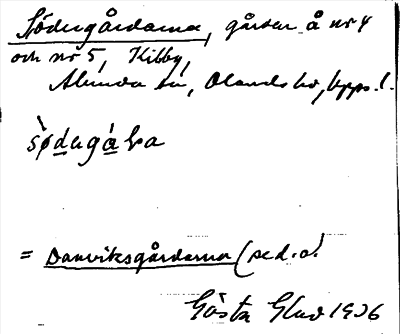 Södergårdarna, gårdar å nr 4
och nr 5, Kibby,
Alunda sn, Olands hd, Upps. l.
sødugáɫa
= Danviksgårdarna (se d. o.)
Gösta Glad 1936